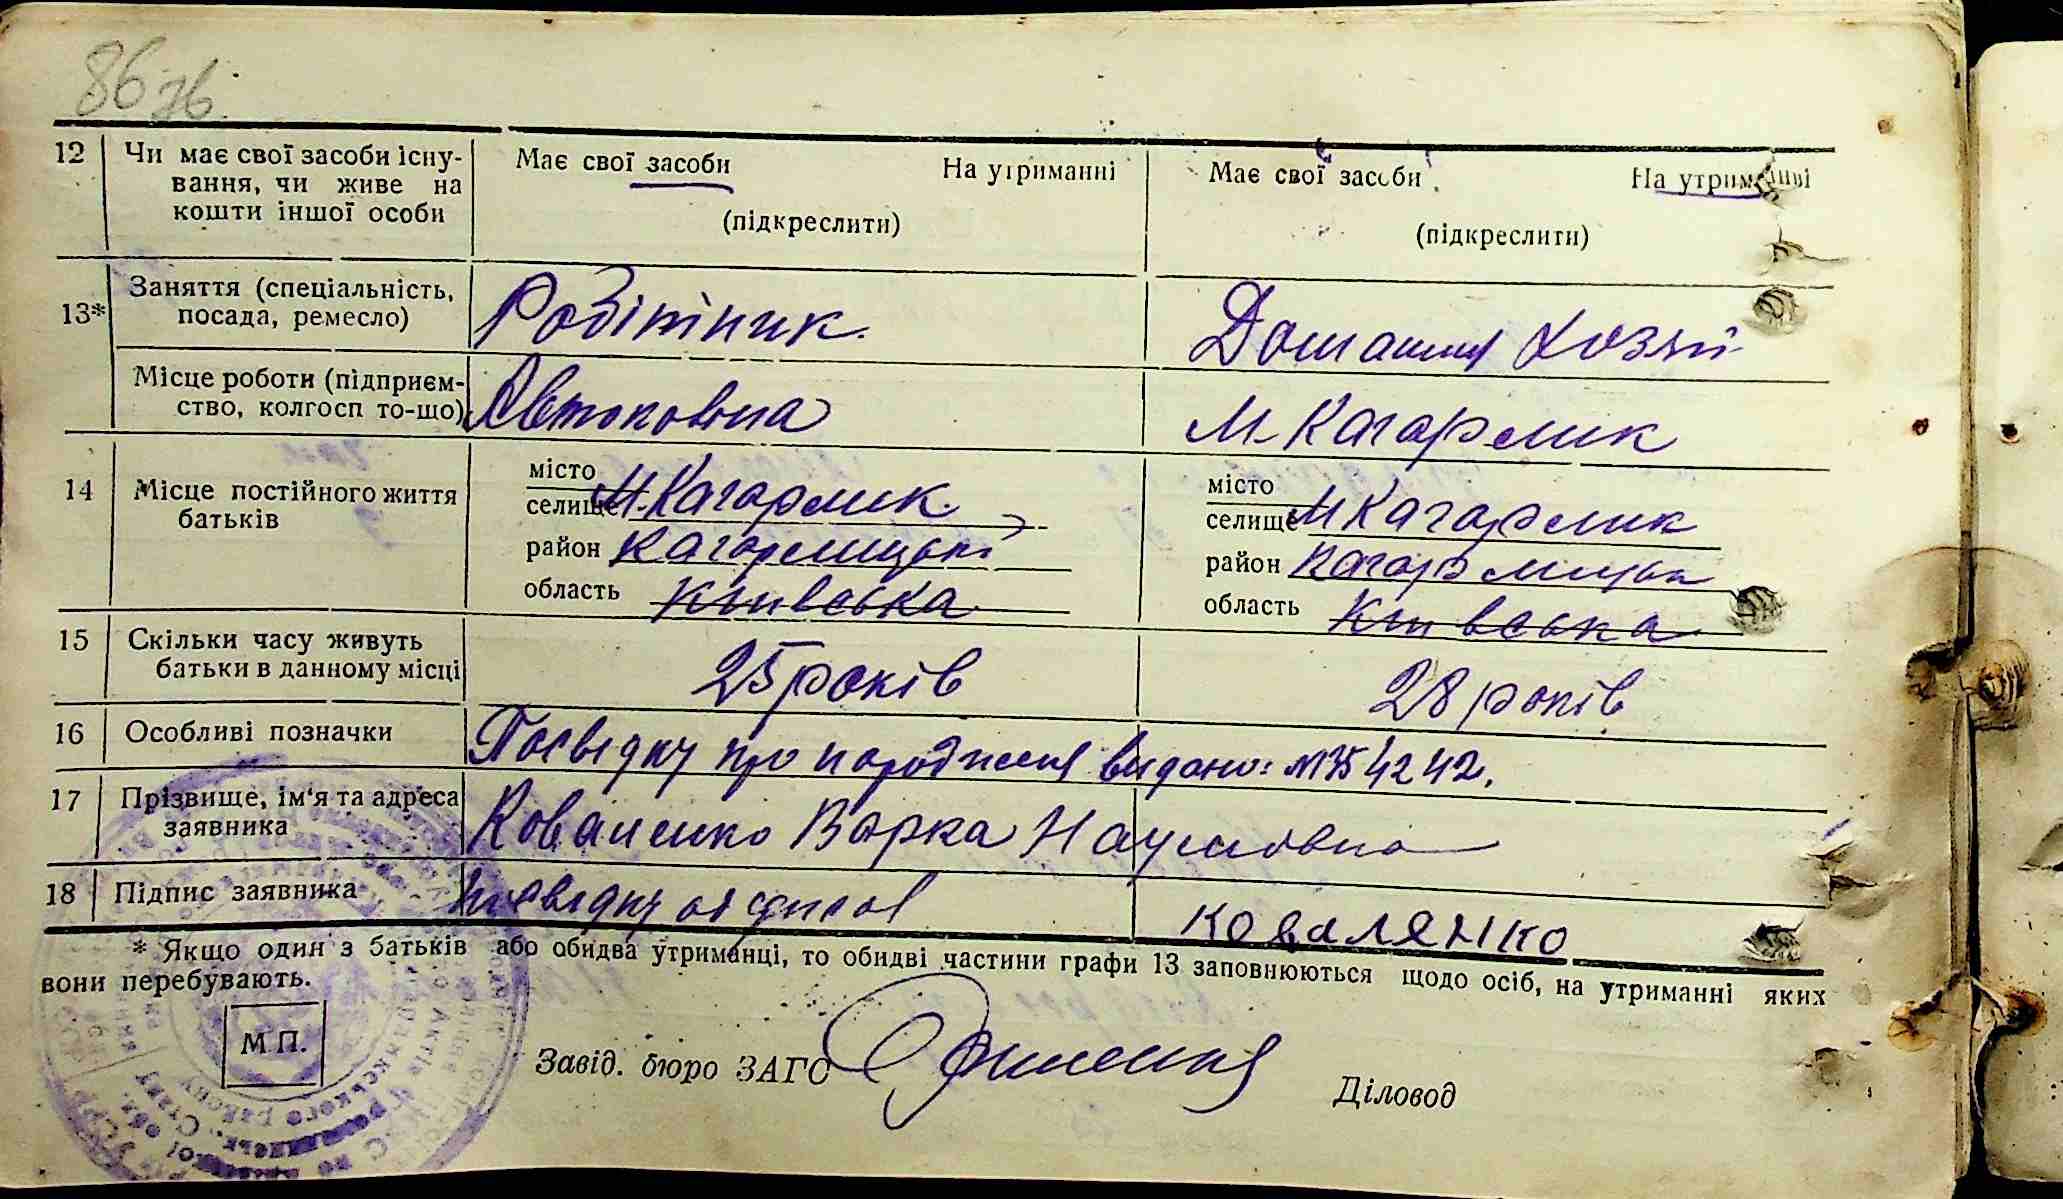 86 зв.
12 Чи має свої засоби існу- Має свої засоби На утриманні Має свої засоби На утриманні
вання, чи живе на
кошти іншої особи (підкреслити) (підкреслити)
13* Заняття (спеціальність, Робітник. Домашня Хозяй-
посада, ремесло)
Місце роботи (підприєм- М-Кагарлик
ство, колгосп то-що)
14 Місце постійного життя місто місто
батьків селище М.Кагарлик. селище М Кагарлик
район Кагарлицькі район Кагарлицьки
область Київська область Київська
15 Скільки часу живуть 25 років 28 років
батьки в данному місці
16 Особливі позначки Посвідку про народження видано: № 354242.
17 Прізвище, ім'я та адреса Коваленко Варка Наумовна
заявника
18 Підпис заявника посвідку одержал Коваленко
* Якщо один з батьків або обидва утриманці, то обидві частини графи 13 заповнюються щодо осіб, на утриманні яких
вони перебувають.
М П.
Завід. бюро ЗАГС Діловод